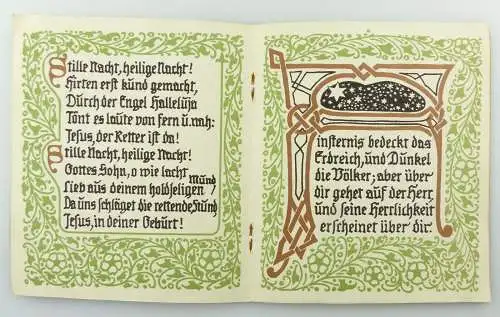 Stille Nacht, heilige Nacht!
Hirten erst kund gemacht,
Durch der Engel Halleluja
Tönt es laute von fern u. nah:
Jesus, der Retter ist da!
Stille Nacht, heilige Nacht!
Gottes Sohn, o wie lacht
Lieb aus deinem holdseligen Mund
Da uns schläget die rettende Stund
Jesus, in deiner Geburt!
Finsternis bedeckt das
Erdreich, und Dunkel
die Völker; aber über
dir gehet auf der Herr,
und seine Herrlichkeit
erscheinet über dir.